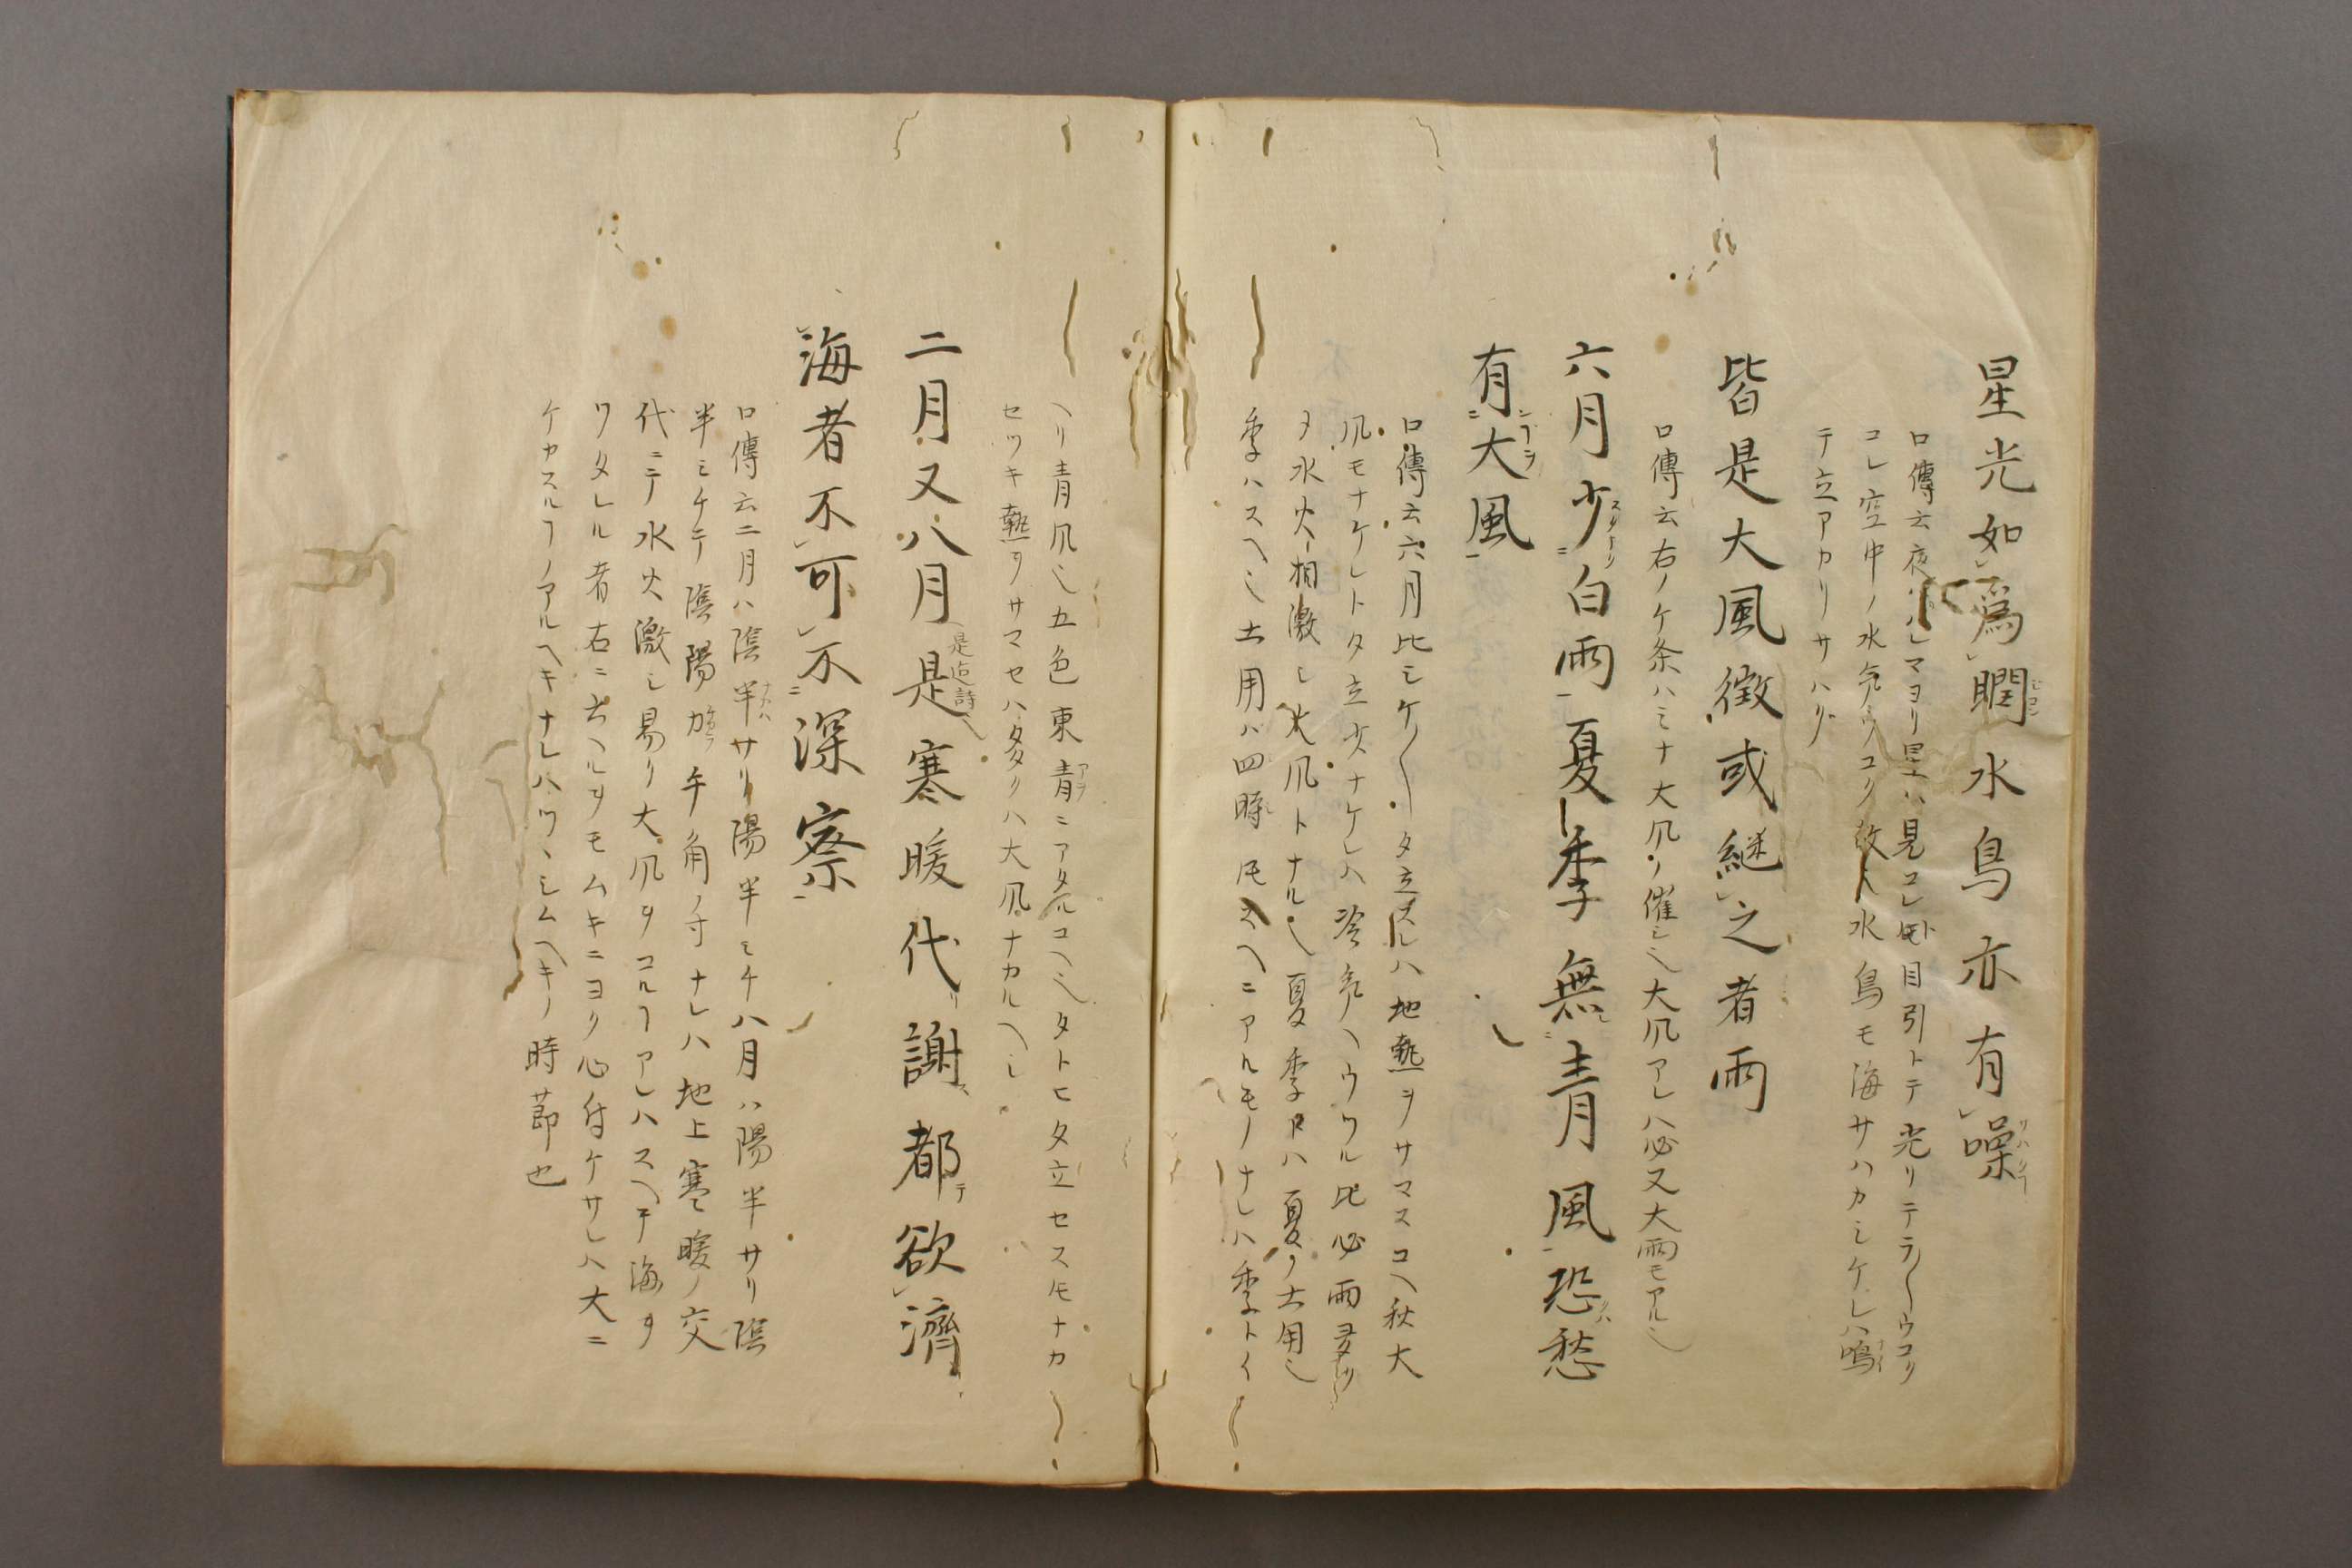 星光如為瞤水鳥亦有噪
口傳云夜ハレマヨリ星ハ見コレ𪜈目引トテ光リテラ〱ウコク
コレ空中ノ水気ウコク故也水鳥モ海サハカシケレハ鳴
テ立アカリサハク
皆是大風徴或継之者雨
口傳云右ノケ条ハミナ大風ノ催シ也大風アレハ必又大雨モアルヘシ
六月少白雨夏季無青風恐愁
有大風
口傳云六月比シケ〱夕立スレハ地熱ヲサマスユヘ秋大
風モナケレト夕立少ナケレハ冷気ヘウツル比必雨ヲタリ
メ水火相激し大風トナルヘシ夏季トハ夏ノ土用也
季ハスヘ也土用ハ四時𪜈スヘニアルモノナレハ季トイ
ヘリ青風也五色東青ニアタルユヘ也タトヒ夕立セス𪜈ナカ
セツキ熱ヲサマセハ多クハ大風ナカルヘシ
二月又八月是寒暖代謝都欲濟
海者不可不深察
口傳云二月ハ陰半サリ陽半ミチ八月ハ陽半サリ陰
半ミチテ陰陽力午角ノ寸ナレハ地上寒暖ノ交
代ニテ水火激シ易ク大風ヲコルヿアレハスヘテ海ヲ
ワタレル者右ニ云ヘルヲモムキニヨク心付ケサレハ大ニ
ケカスルヿノアルヘキナレハツヽシムヘキノ時節也